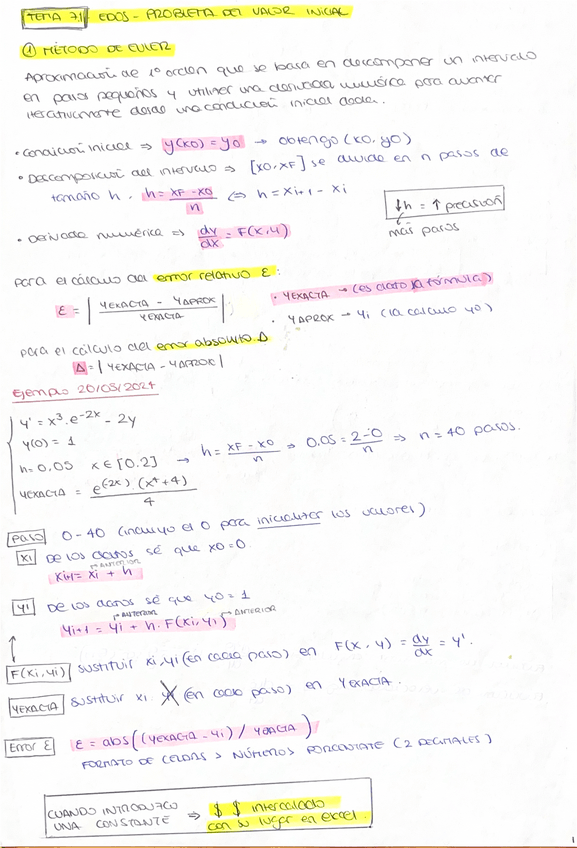 TEMA 7.1 EDOS - PROBLEMA DEL VALOR INICIAL
① MÉTODO DE EULER
Aproximación de 1º orden que se basa en descomponer un intervalo
en pasos pequeños y utilizar una derivada numérica para avanzar
iterativamente desde una condición inicial dada.
• Condición inicial ⇒ y(x0) = y0 → obtengo (x0, y0)
• Descomposición del intervalo ⇒ [x0, xF] se divide en n pasos de
tamaño h. h = (xF - x0)/n ⇔ h = xi+1 - xi
↓h = ↑ precisión
más pasos
• Derivada numérica ⇒ dy/dx = F(x,y)
para el cálculo del error relativo ε:
ε = | (YEXACTA - YAPROX)/YEXACTA |
• YEXACTA → (es dato la fórmula)
• YAPROX → yi (la calculo yo)
para el cálculo del error absoluto Δ
Δ = | YEXACTA - YAPROX |
Ejemplo 20/05/2024
y' = x³·e^-2x - 2y
y(0) = 1
h = 0.05 x ∈ [0.2] → h = (xF - x0)/n ⇒ 0.05 = (2-0)/n ⇒ n = 40 pasos.
YEXACTA = e^(2x)·(x⁴+4)/4
PASO 0-40 (incluyo el 0 para inicializar los valores)
xi De los datos sé que x0 = 0
ANTERIOR
xi+1 = xi + h
yi De los datos sé que y0 = 1
ANTERIOR ANTERIOR
yi+1 = yi + h·F(xi, yi)
F(xi, yi) sustituir xi, yi (en cada paso) en F(x, y) = dy/dx = y'.
YEXACTA sustituir xi (en cada paso) en YEXACTA.
Error ε ε = abs((YEXACTA - yi) / YEXACTA)
FORMATO DE CELDAS > NÚMERO > PORCENTAJE (2 DECIMALES)
CUANDO INTRODUZCO
UNA CONSTANTE ⇒ $ $ intercalado
con su lugar en excel.
1